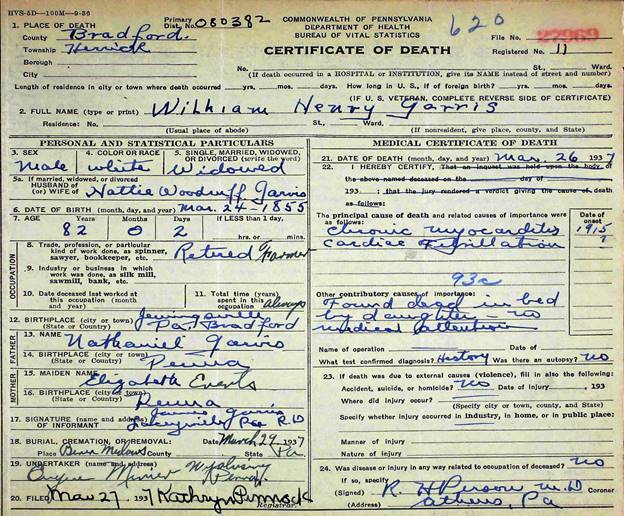 HVS-5D—100M—9-36
1. PLACE OF DEATH
County Bradford
Township Herrick
Borough
City
Primary Dist. No. 080382
COMMONWEALTH OF PENNSYLVANIA
DEPARTMENT OF HEALTH
BUREAU OF VITAL STATISTICS
CERTIFICATE OF DEATH
620
File No. 27969
Registered No. 11
No. St., Ward.
(If death occurred in a HOSPITAL or INSTITUTION, give its NAME instead of street and number)
Length of residence in city or town where death occurred yrs. mos. days. How long in U. S., if of foreign birth? yrs. mos. days.
(IF U. S. VETERAN, COMPLETE REVERSE SIDE OF CERTIFICATE)
2. FULL NAME (type or print) William Henry Garris
Residence: No. St., Ward.
(Usual place of abode) (If nonresident, give place, county, and State)
PERSONAL AND STATISTICAL PARTICULARS
3. SEX 4. COLOR OR RACE 5. SINGLE, MARRIED, WIDOWED, OR DIVORCED (write the word)
Male white Widowed
5a. If married, widowed, or divorced
HUSBAND of (or) WIFE of Hattie Woodruff Garris
6. DATE OF BIRTH (month, day, and year) Mar. 24-1855
7. AGE Years Months Days If LESS than 1 day,
82 0 2 hrs. or mins.
OCCUPATION
8. Trade, profession, or particular kind of work done, as spinner, sawyer, bookkeeper, etc. Retired Farmer
9. Industry or business in which work was done, as silk mill, sawmill, bank, etc.
10. Date deceased last worked at this occupation (month and year)
11. Total time (years) spent in this occupation always
12. BIRTHPLACE (city or town) (State or Country) Pa. Bradford
FATHER
13. NAME Nathaniel Garris
14. BIRTHPLACE (city or town) (State or Country) Penna
MOTHER
15. MAIDEN NAME Elizabeth Everts
16. BIRTHPLACE (city or town) (State or Country) Penna
17. SIGNATURE (name and address) OF INFORMANT James Garris
Laceyville Pa R.D
18. BURIAL, CREMATION, OR REMOVAL: Date March 29 1937
Place County State Pa.
19. UNDERTAKER (name and address)
20. FILED Mar 27 1937 Kathryn Pinnock
Registrar.
MEDICAL CERTIFICATE OF DEATH
21. DATE OF DEATH (month, day, and year) Mar. 26 1937
22. I HEREBY CERTIFY, That an inquest was held upon the body of
the above named deceased on the day of
193 that the jury rendered a verdict giving the cause of death
as follows:
The principal cause of death and related causes of importance were as follows: Date of onset
Chronic myocarditis 1915
Cardiac Fibrillation ?
93c
Other contributory causes of importance:
Found dead in bed
by daughter - no
medical attention
Name of operation
What test confirmed diagnosis? History Was there an autopsy? no
23. If death was due to external causes (violence), fill in also the following:
Accident, suicide, or homicide? no Date of injury , 193
Where did injury occur?
(Specify city or town, county, and State)
Specify whether injury occurred in industry, in home, or in public place.
Manner of injury
Nature of injury
24. Was disease or injury in any way related to occupation of deceased? no
If so, specify
(Signed) R. H Person M.D
Coroner
(Address) Athens, Pa